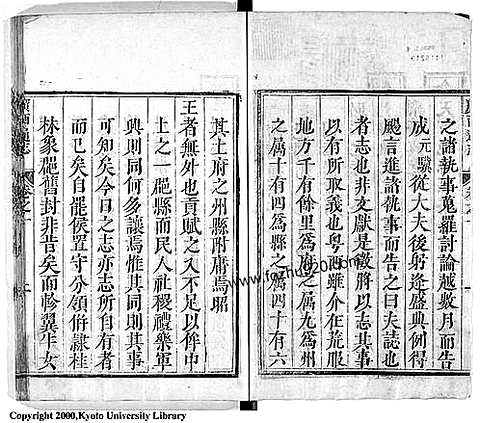 之諸執事蒐羅討論越數月而告
成元驥從大夫後躬逢盛典例得
颺言進諸執事而告之曰夫誌也
者志也非文獻是徵將以志其事
以有所取義也粤西雖介在荒服
地方千有餘里爲府之屬九爲州
之屬十有四爲縣之屬四十有六
其土府之州縣附庸焉昭
王者無外也貢賦之入不足以侔中
土之一郡縣而民人社稷禮樂軍
興則同何多讓焉惟其同則其事
可知矣今日之志亦志所自有者
而已矣自罷侯置守分領併隸桂
林象郡舊封非昔矣而軫翼牛女
廣西通志
www.fozhu920.com
Copyright 2000,Kyoto University Library